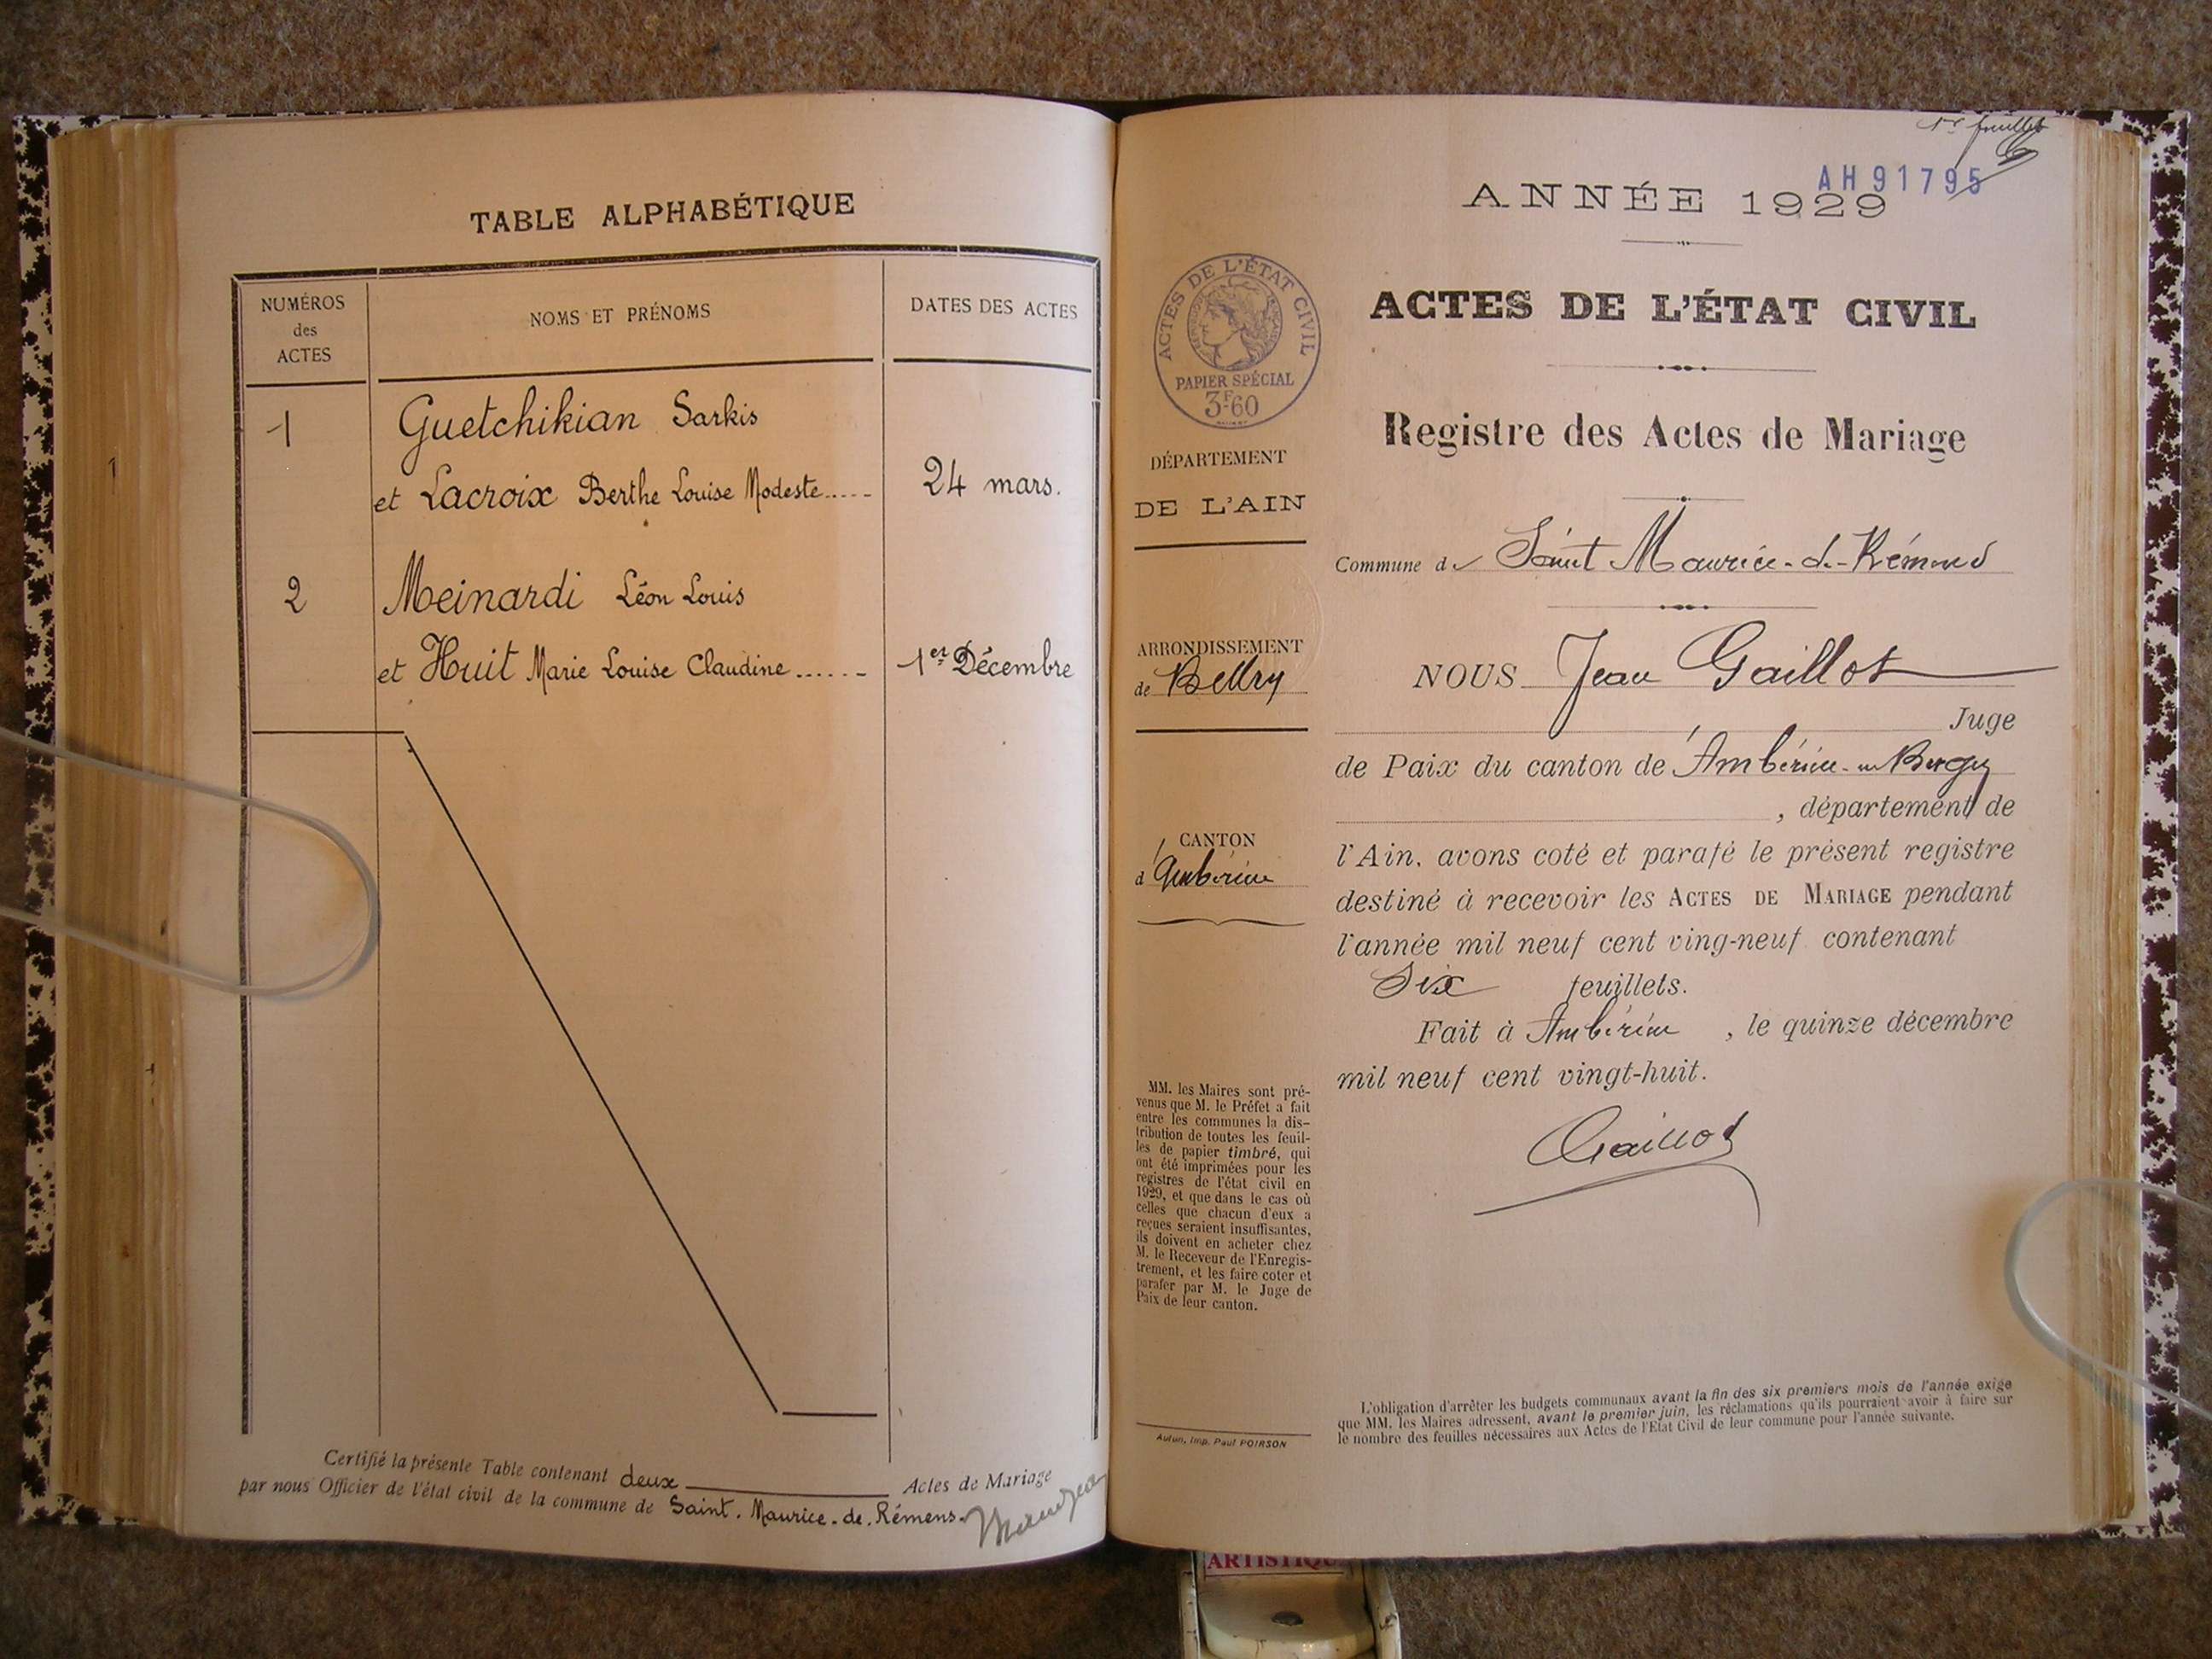 TABLE ALPHABÉTIQUE
NUMÉROS
des
ACTES
NOMS ET PRÉNOMS
DATES DES ACTES
1
Guetchikian Sarkis
et Lacroix Berthe Louise Modeste.....
24 mars.
2
Meinardi Léon Louis
et Huit Marie Louise Claudine......
1er Décembre
Certifié la présente Table contenant deux Actes de Mariage
par nous Officier de l'état civil de la commune de Saint. Maurice. de. Rémens.
1er feuillet
AH91795
ANNÉE 1929
ACTES DE L'ÉTAT CIVIL
Registre des Actes de Mariage
ACTES DE L'ÉTAT CIVIL
PAPIER SPÉCIAL
3F60
DÉPARTEMENT
DE L'AIN
ARRONDISSEMENT
de Belley
CANTON
d'Ambérieu
MM. les Maires sont pré-
venus que M. le Préfet a fait
entre les communes la dis-
tribution de toutes les feuil-
les de papier timbré, qui
ont été imprimées pour les
registres de l'état civil en
1929, et que dans le cas où
celles que chacun d'eux a
reçues seraient insuffisantes,
ils doivent en acheter chez
M. le Receveur de l'Enregis-
trement, et les faire coter et
parafer par M. le Juge de
Paix de leur canton.
Autun, Imp. Paul POIRSON
Commune de Saint Maurice-de-Rémens
NOUS Jean Gaillot
Juge
de Paix du canton de Ambérieu-en-Bugey
, département de
l'Ain, avons coté et parafé le présent registre
destiné à recevoir les ACTES DE MARIAGE pendant
l'année mil neuf cent ving-neuf contenant
Six feuillets.
Fait à Ambérieu , le quinze décembre
mil neuf cent vingt-huit.
Gaillot
L'obligation d'arrêter les budgets communaux avant la fin des six premiers mois de l'année exige
que MM. les Maires adressent, avant le premier juin, les réclamations qu'ils pourraient avoir à faire sur
le nombre des feuilles nécessaires aux Actes de l'Etat Civil de leur commune pour l'année suivante.